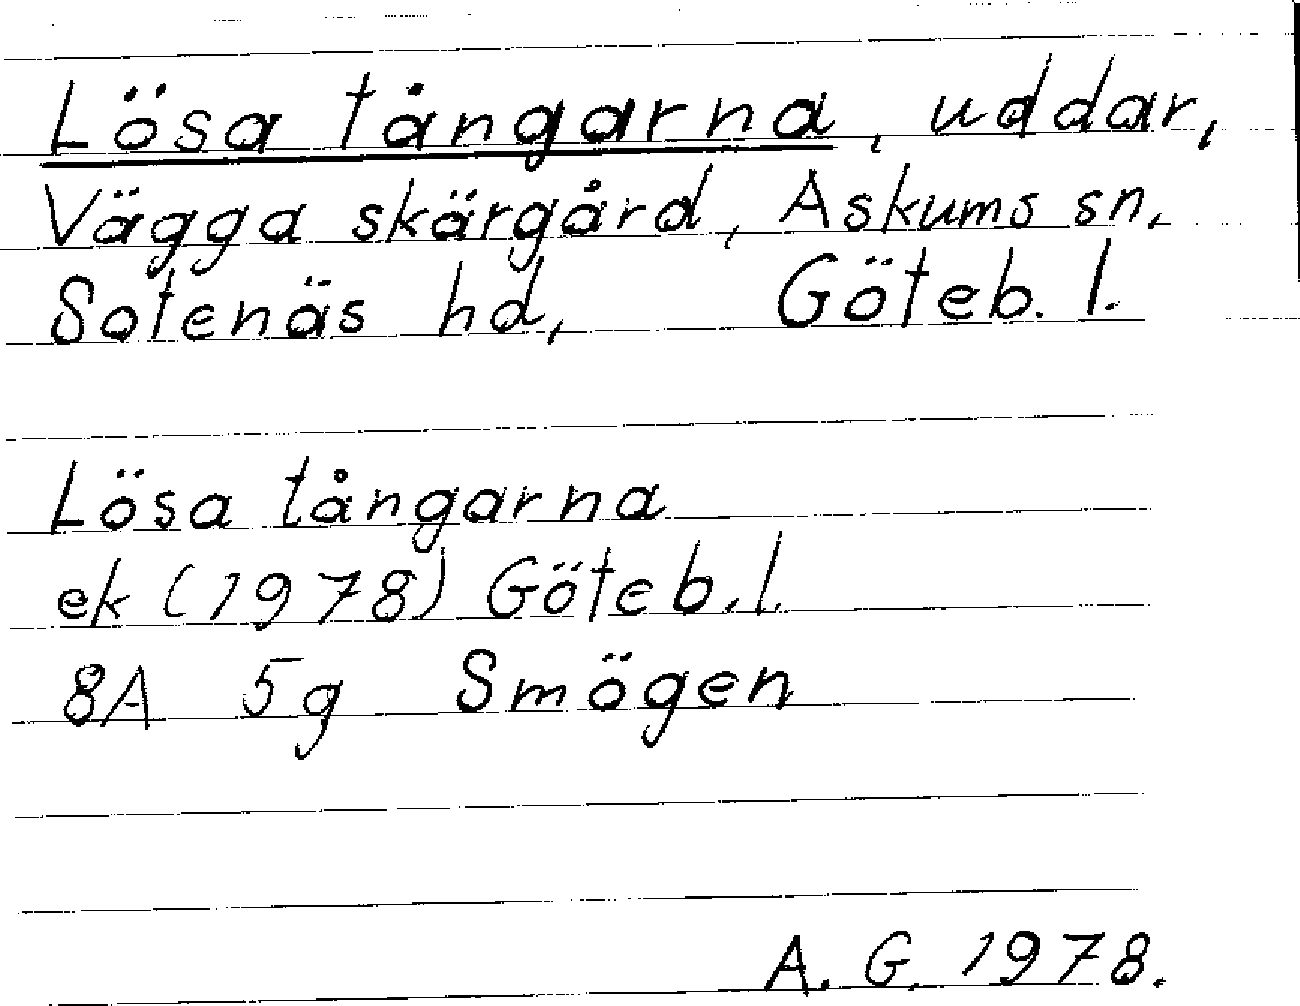 Lösa tångarna, uddar,
Vägga skärgård, Askums sn.
Sotenäs hd, Göteb. l.
Lösa tångarna
ek (1978) Göteb. l.
8A 5g Smögen
A. G. 1978.